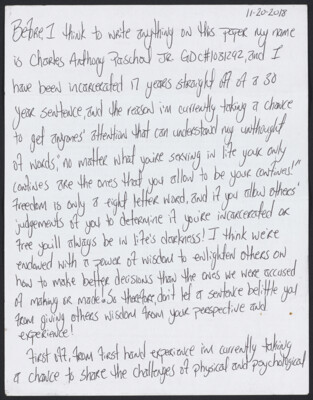 11-20-2018
Before I think to write anything on this paper my name
is Charles Anthony Paschal JR GDC#1031292, and I
have been incarcerated 17 years straight off of a 30
year sentence, and the reason i'm currently taking a chance
to get anyones' attention that can understand my
of words," no matter what you're serving in life your only
confines are the ones that you allow to be your confines!"
Freedom is only a eight letter word, and if you allow others'
judgements of you to determine if you're incarcerated or
free you'll always be in life's darkness! I think we're
endowed with a power of wisdom to enlighten others on
how to make better decisions than the ones we were accused
of making or made. So therefore, don't let a sentence belittle you
from giving others wisdom from your perspective and
experience!
First off, from first hand experience i'm currently taking
a chance to share the challenges of physical and psychological